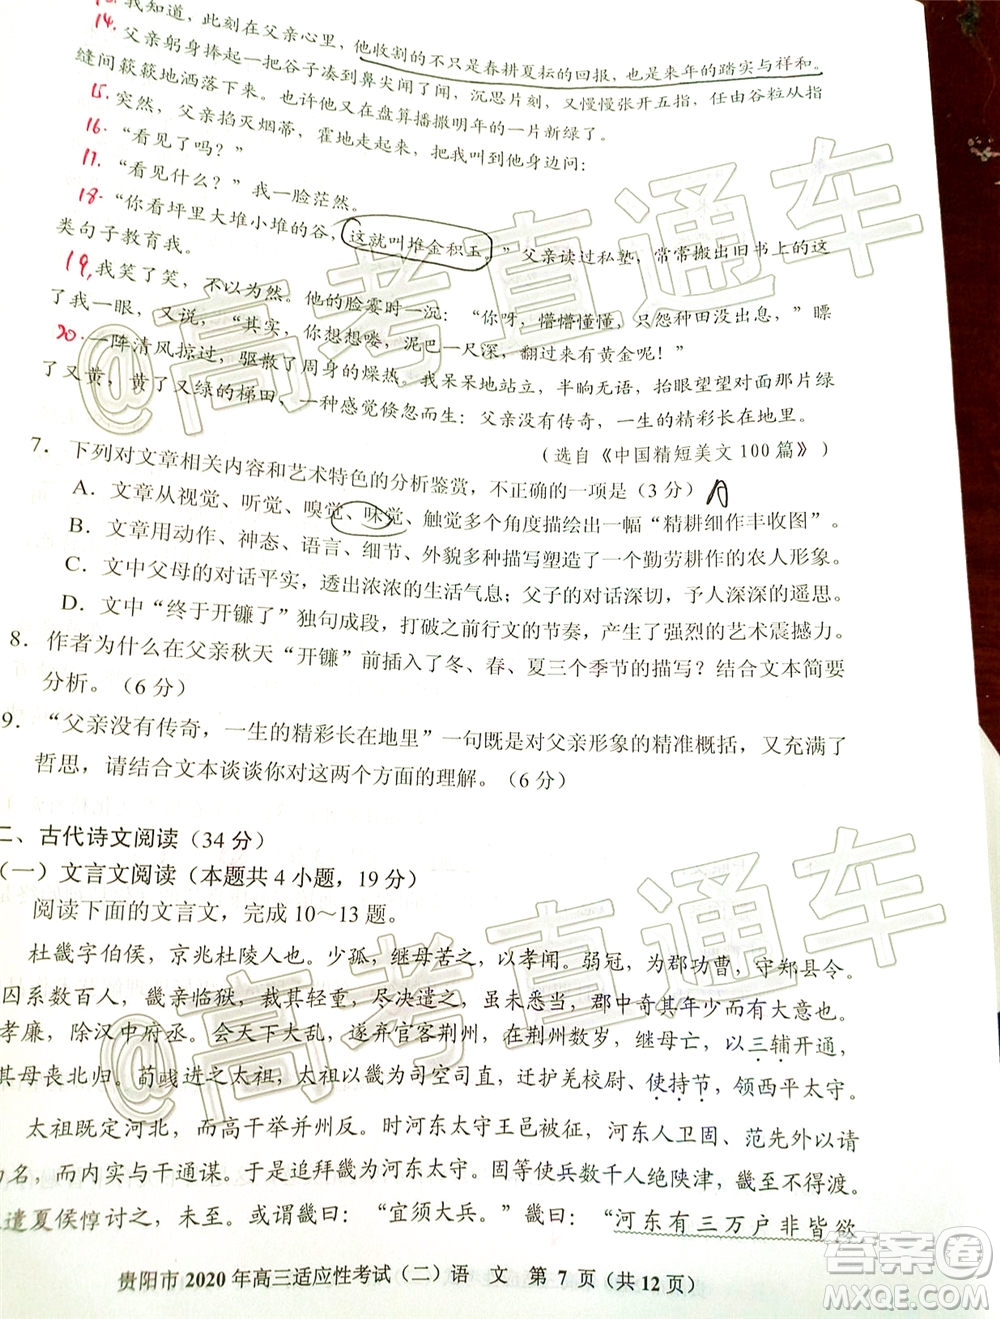 13. 我知道，此刻在父亲心里，他收割的不只是春耕夏耘的回报，也是来年的踏实与祥和。
14. 父亲躬身捧起一把谷子凑到鼻尖闻了闻，沉思片刻，又慢慢张开五指，任由谷粒从指
缝间簌簌地洒落下去。也许他又在盘算播撒明年的一片新绿了。
15. 突然，父亲掐灭烟蒂，霍地走起来，把我叫到他身边问：
16. “看见了吗？”
17. “看见什么？”我一脸茫然。
18. “你看坪里大堆小堆的谷，这就叫堆金积玉。”父亲读过私塾，常常搬出旧书上的这
类句子教育我。
19. 我笑了笑，不以为然。他的脸霎时一沉：“你呀，懵懵懂懂，只怨种田人穷！”瞟
了我一眼，又说，“其实，你想想喽，泥巴一尺深，翻下去也会有黄金呢！”
20. 一阵清风掠过，驱散了周身的燥热。我呆呆地站立，半晌无语，抬眼望望对面那片绿
了又黄，黄了又绿的梯田，一种感觉倏忽而生：父亲没有传奇，一生的精彩长在地里。
（选自《中国精短美文100篇》）
7．下列对文章相关内容和艺术特色的分析鉴赏，不正确的一项是（3分） A
A．文章从视觉、听觉、嗅觉、味觉、触觉多个角度描绘出一幅“精耕细作丰收图”。
B．文章用动作、神态、语言、细节、外貌多种描写塑造了一个勤劳耕作的农人形象。
C．文中父母的对话平实，透出浓浓的生活气息；父子的对话深切，予人深深的遥思。
D．文中“终于开镰了”独句成段，打破之前行文的节奏，产生了强烈的艺术震撼力。
8．作者为什么在父亲秋天“开镰”前插入了冬、春、夏三个季节的描写？结合文本简要
分析。（6分）
9．“父亲没有传奇，一生的精彩长在地里”一句既是对父亲形象的精准概括，又充满了
哲思，请结合文本谈谈你对这两个方面的理解。（6分）
二、古代诗文阅读（34分）
（一）文言文阅读（本题共4小题，19分）
阅读下面的文言文，完成10～13题。
杜畿字伯侯，京兆杜陵人也。少孤，继母苦之，以孝闻。弱冠，为郡功曹，守郑县令。
囚系数百人，畿亲临狱，尽决遣之，虽未悉当，郡中奇其年少而有大意也。
孝廉，除汉中府丞。会天下大乱，遂弃官客荆州，在荆州数岁，继母亡，以三辅开通，
其母丧北归。荀彧进之太祖，太祖以畿为司空司直，迁护羌校尉，使持节，领西平太守。
太祖既定河北，而高干举并州反。时河东太守王邑被征，河东人卫固、范先外以请
为名，而内实与干通谋。于是追拜畿为河东太守。固等使兵数千人绝陕津，畿至不得渡。
遣夏侯惇讨之，未至。或谓畿曰：“宜须大兵。”畿曰：“河东有三万户非皆欲
贵阳市2020年高三适应性考试（二）语 文 第7页（共12页）
@高考直通车
@高考直通车
答案圈
MXQE.COM